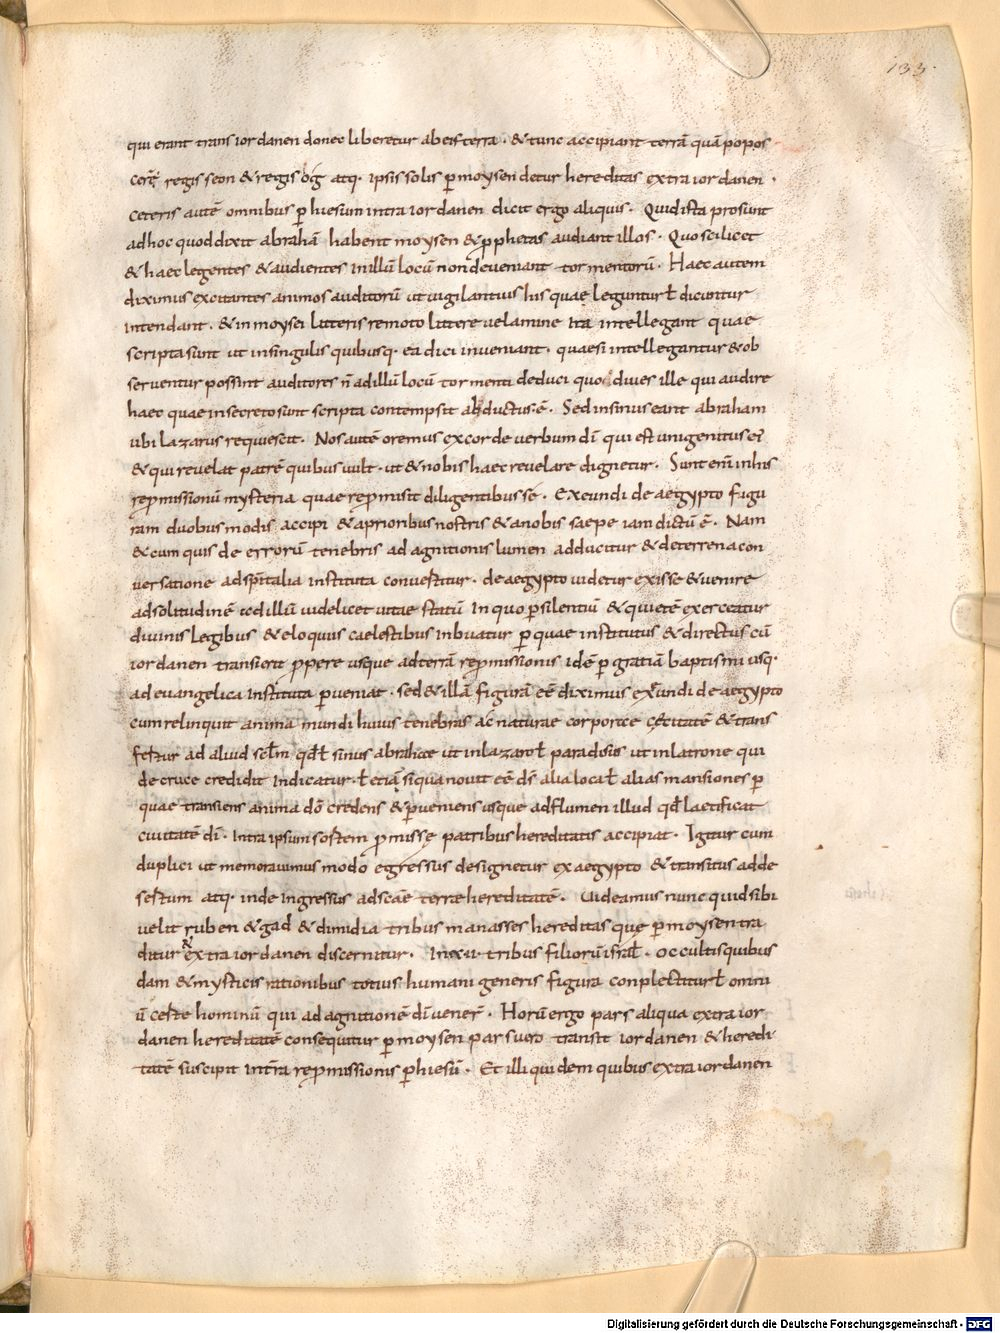 133.
qui erant trans iordanen donec liberetur ab eis terra · & tunc accipiant terrā quā popos
cer̄t regis seon & regis og atq· ipsis solis ꝑ moysen detur hereditas extra iordanen ·
ceteris autē omnibus ꝑ hiesum intra iordanen dicit ergo aliquis · Quid ista prosunt
ad hoc quod dixit abrahā habent moysen & ꝓphetas audiant illos · Quo scilicet
& haec legentes & audientes in illū locū non deveniant tormentorū · Haec autem
diximus excitantes animos auditorū ut vigilantius his quae leguntur ƚ dicuntur
intendant · & in moysei litteris remoto littere velamine ita intellegant quae
scripta sunt ut in singulis quibusq· ea dici inveniant · quae si intellegantur & ob
serventur possint auditores n̄ ad illū locū tormenti deduci quo dives ille qui audire
haec quae in secreto sunt scripta contempsit abductus · ē · Sed in sinus eant abraham
ubi lazarus requiescit · Nos autē oremus ex corde verbum dī qui est unigenitus ei
& qui revelat patrē quibus vult · ut & nobis haec revelare dignetur · Sunt enī in his
reꝓmissionū mysteria quae reꝓmisit diligentibus se · Exeundi de aegypto figu
ram duobus modis accipi & a prioribus nostris & a nobis saepe iam dictū ē · Nam
& cum quis de errorū tenebris ad agnitionis lumen adducitur & de terrena con
versatione ad spitalia instituta convertitur · de aegypto videtur exisse & venire
ad solitudinē ad illū videlicet vitae statū in quo ꝑ silentiū & quietē exerceatur
divinis legibus & eloquiis caelestibus inbuatur ꝑ quae institutus & directus cū
iordanen transierit ꝓpere usque ad terrā reꝓmissionis idē ꝑ gratiā baptismi usq·
ad evangelica instituta ꝑveniat · sed & illā figurā eē diximus exeundi de aegypto
cum relinquit anima mundi huius tenebras ac naturae corporeae cęcitatē & trans
fertur ad aliud sclm qd ƚ sinus abrahae ut in lazaro ƚ paradisus ut in latrone qui
de cruce credidit indicatur · ƚ etiā si qua novit eē ds alia loca ƚ alias mansiones ꝑ
quae transiens anima dō credens & ꝑveniens usque ad flumen illud qd laetificat
civitatē dī · intra ipsum sortem ꝓmissę patribus hereditatis accipiat · Igitur cum
duplici ut memoravimus modo egressus designetur ex aegypto & transitus ad de
sertum atq· inde ingressus ad scāe terrae hereditatē · Videamus nunc quid sibi
velit ruben & gad & dimidia tribus manasses hereditas quę ꝑ moysen tra
ditur & extra iordanen discernitur · In · xii · tribus filiorū isrƚ · occultis quibus
dam & mysticis rationibus totius humani generis figura conplectitur ƚ omni
ū certe hominū qui ad agnitionē dī vener̄ · Horū ergo pars aliqua extra ior
danen hereditatē consequitur ꝑ moysen pars vero transit iordanen & heredi
tatē suscipit in terra reꝓmissionis ꝑ hiesū · Et illi quidem quibus extra iordanen
Digitalisierung gefördert durch die Deutsche Forschungsgemeinschaft - DFG